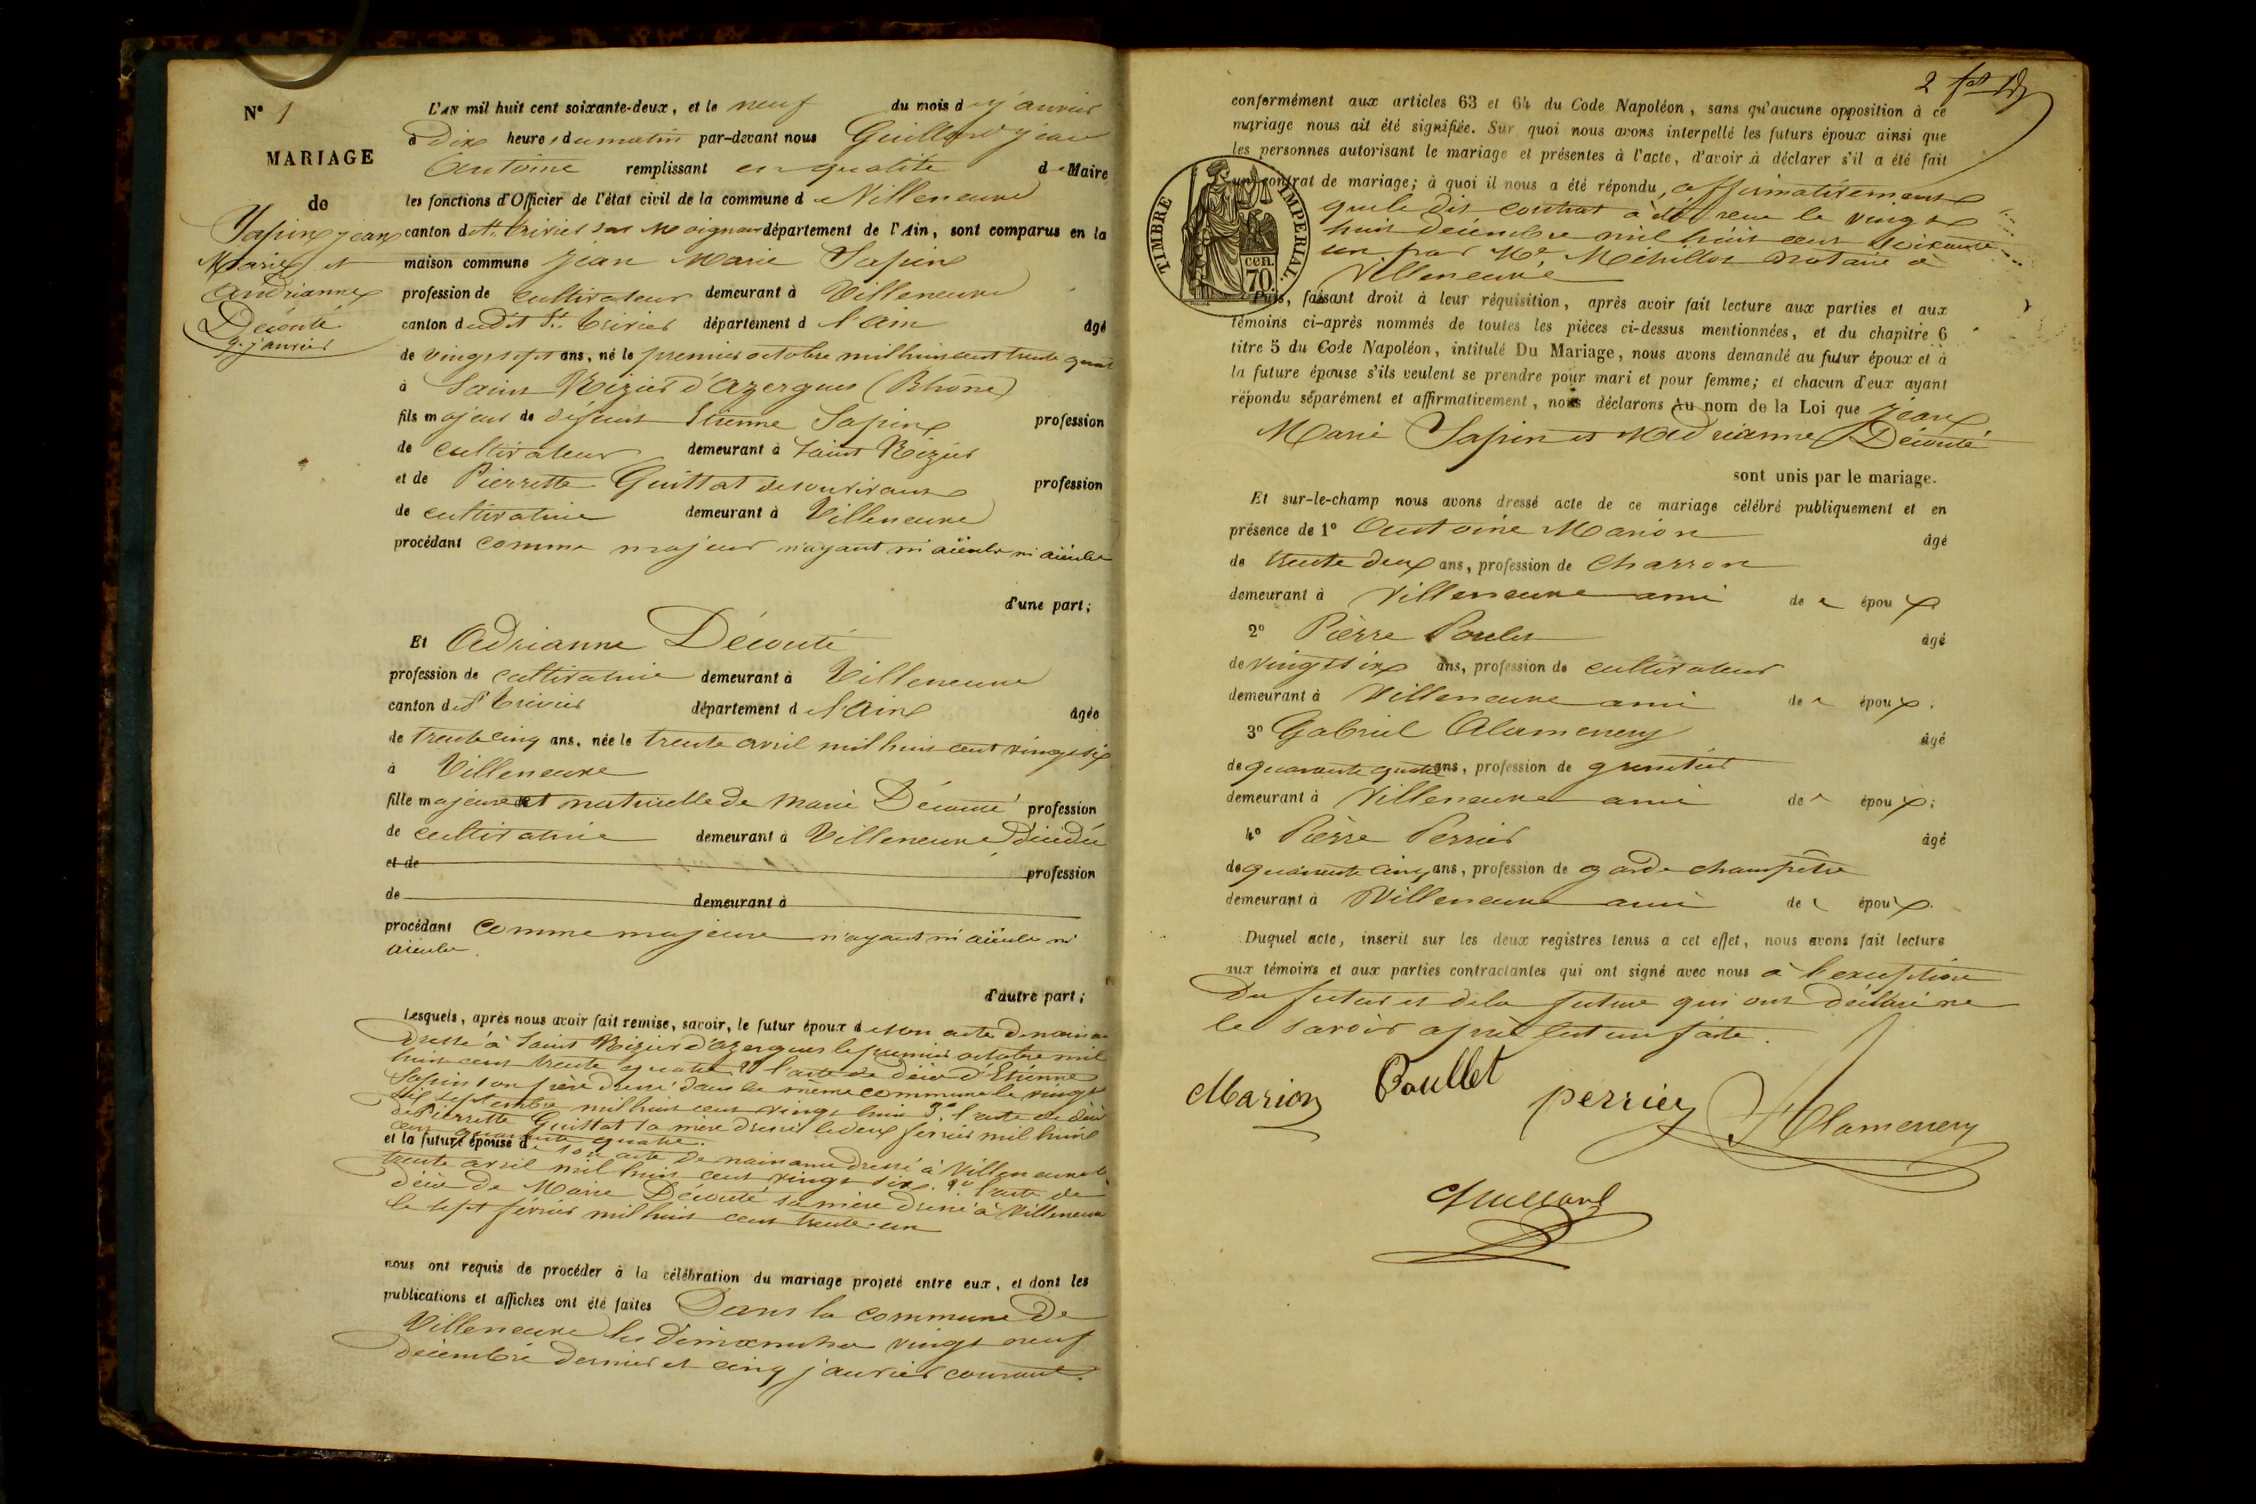 N° 1
MARIAGE
de
Sapin jean
Marie et
Andrianne
Découte
9. janvier
L'AN mil huit cent soixante-deux, et le neuf du mois de janvier
à Dix heures du matin par-devant nous Guillard jean
Antoine remplissant en qualité de Maire
les fonctions d'Officier de l'état civil de la commune de Villeneuve
canton de St. trivier sur Moignans département de l'Ain, sont comparus en la
maison commune jean Marie Sapin
profession de cultivateur demeurant à Villeneuve
canton dudit St. trivier département de l'Ain âgé
de vingt sept ans, né le premier octobre mil huit cent trente quatre
à Saint Nizier d'Azergues (Rhône)
fils majeur de défunt Etienne Sapin profession
de cultivateur demeurant à Saint Nizier
et de Pierrette Guittat profession
de cultivatrice demeurant à Villeneuve
procédant comme majeur n'ayant ni aïeule ni aïeule
d'une part;
Et Adrianne Découte
profession de cultivatrice demeurant à Villeneuve
canton de St trivier département de l'Ain âgée
de trente cinq ans, née le trente avril mil huit cent vingt six
à Villeneuve
fille majeure et naturelle de Marie Découte profession
de cultivatrice demeurant à Villeneuve Décédée
et de profession
de demeurant à
procédant comme majeure n'ayant ni aïeule ni
aïeule.
d'autre part;
Lesquels, après nous avoir fait remise, savoir, le futur époux de son acte de naissance
Dressé à Saint Nizier d'Azergues le premier octobre mil
huit cent trente quatre 2° l'acte de décès d'Etienne
Sapin son père dressé dans la même commune le vingt
six septembre mil huit cent vingt huit 3° l'acte de décès
de Pierrette Guittat sa mère dressé le deux février mil huit
cent quarante quatre.
et la future épouse de son acte de naissance dressé à Villeneuve le
trente avril mil huit cent vingt six. 2° l'acte de
décès de Marie Découte sa mère dressé à Villeneuve
le sept février mil huit cent trente un
nous ont requis de procéder à la célébration du mariage projeté entre eux, et dont les
publications et affiches ont été faites Dans la commune de
Villeneuve les dimanches vingt neuf
décembre dernier et cinq janvier courant.
2
conformément aux articles 63 et 64 du Code Napoléon, sans qu'aucune opposition à ce
mariage nous ait été signifiée. Sur quoi nous avons interpellé les futurs époux ainsi que
les personnes autorisant le mariage et présentes à l'acte, d'avoir à déclarer s'il a été fait
un contrat de mariage; à quoi il nous a été répondu, affirmativement
que le dit contrat a été reçu le vingt
huit décembre mil huit cent soixante
un par Me. Méhillot notaire à
Villeneuve
TIMBRE IMPERIAL.
cen.
70.
Puis, faisant droit à leur réquisition, après avoir fait lecture aux parties et aux
témoins ci-après nommés de toutes les pièces ci-dessus mentionnées, et du chapitre 6
titre 5 du Code Napoléon, intitulé Du Mariage, nous avons demandé au futur époux et à
la future épouse s'ils veulent se prendre pour mari et pour femme; et chacun d'eux ayant
répondu séparément et affirmativement, nous déclarons Au nom de la Loi que jean
Marie Sapin et Adrianne Découte
sont unis par le mariage.
Et sur-le-champ nous avons dressé acte de ce mariage célébré publiquement et en
présence de 1° Antoine Marion âgé
de trente deux ans, profession de Charron
demeurant à Villeneuve ami de époux
2° Pierre Poulet âgé
de vingt six ans, profession de cultivateur
demeurant à Villeneuve ami de époux;
3° Gabriel Alamercery âgé
de quarante quatre ans, profession de
demeurant à Villeneuve ami de époux;
4° Pierre Perrier âgé
de quarante cinq ans, profession de garde champêtre
demeurant à Villeneuve ami de époux.
Duquel acte, inscrit sur les deux registres tenus à cet effet, nous avons fait lecture
aux témoins et aux parties contractantes qui ont signé avec nous à l'exception
Du futur et de la future qui ont déclaré ne
le savoir après lecture faite.
Marion Poullet perrier Alamercery
Guillard